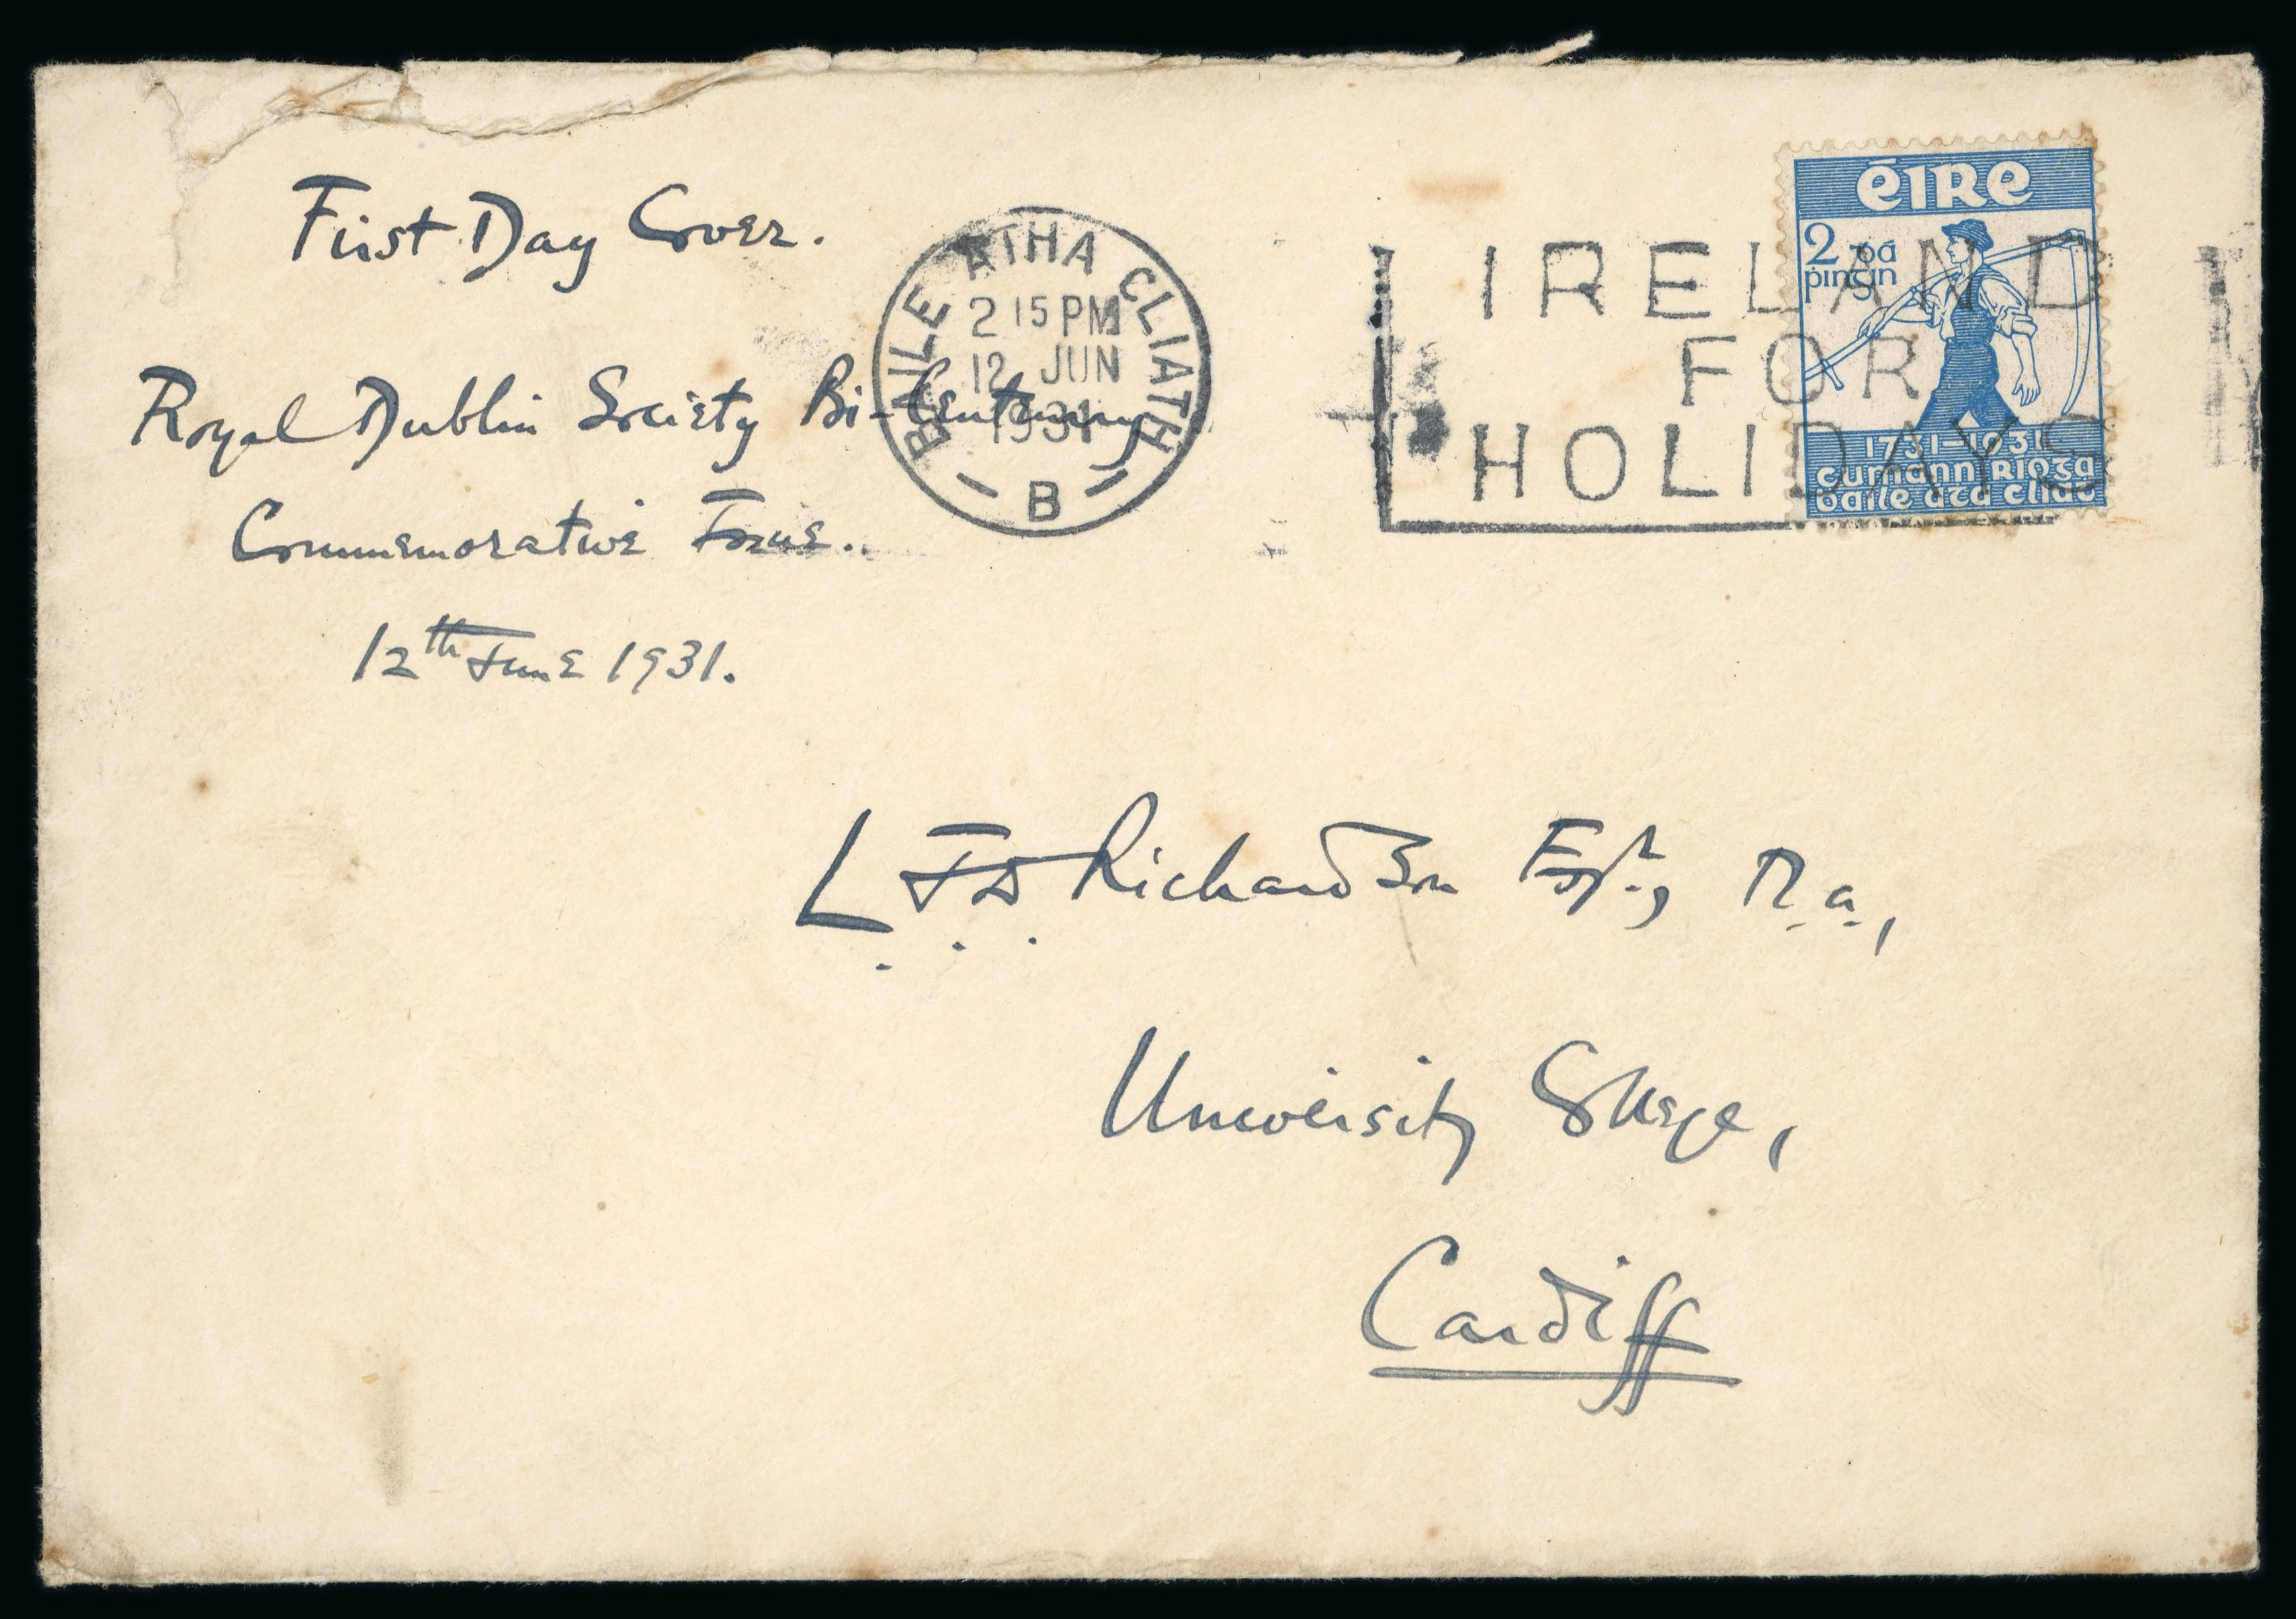 First Day Cover.
Royal Dublin Society Bi-Centenary
Commemorative Issue.
12th June 1931.
BAILE ATHA CLIATH
2 15 PM
12 JUN
1931
B
IRELAND
FOR
HOLIDAYS
éire
2 ḋá
ṗingin
1731–1931
cumann ríoġa
ḃaile áṫa cliaṫ
L. J. D. Richardson Esqr.,
University College,
Cardiff